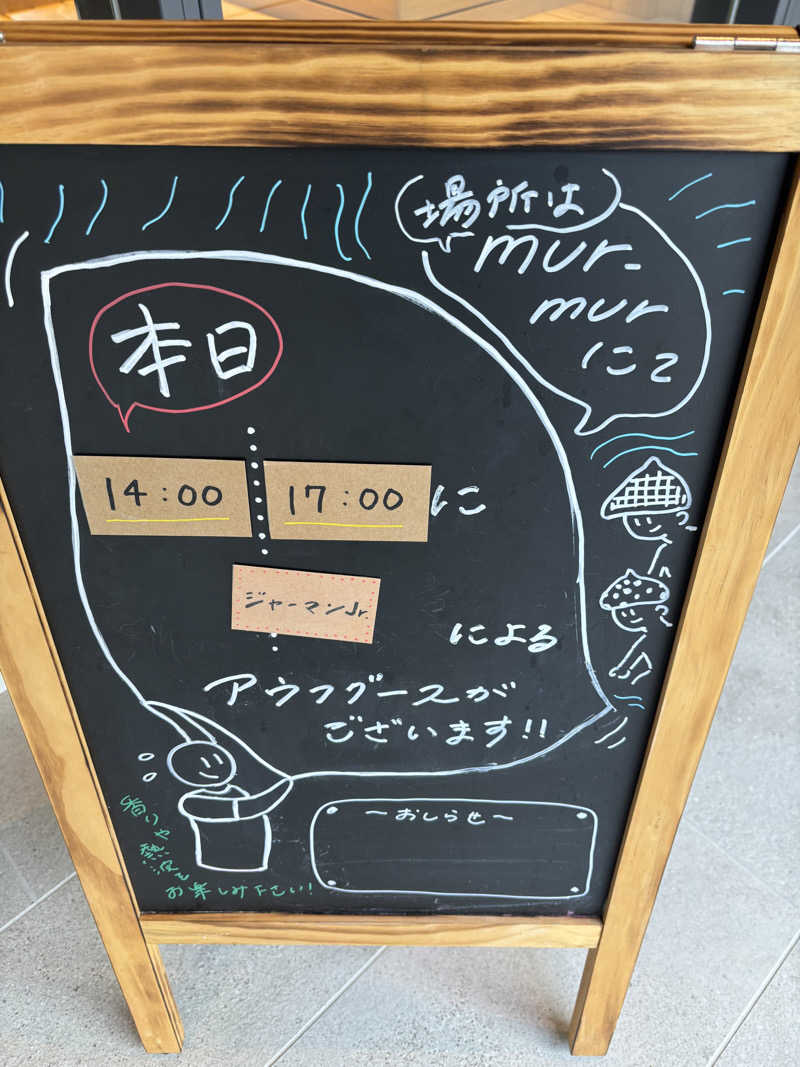 場所は
mur-
mur
にて
本日
14:00 17:00 に
ジャーマンJr.
による
アウフグースが
ございます!!
〜おしらせ〜
香りや
熱波を
お楽しみ下さい!